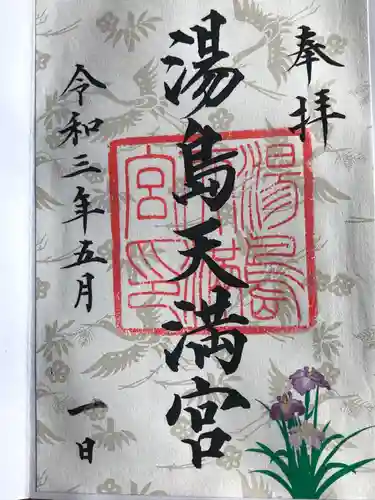 奉拝
湯島天満宮
湯島天満宮印
令和三年五月一日